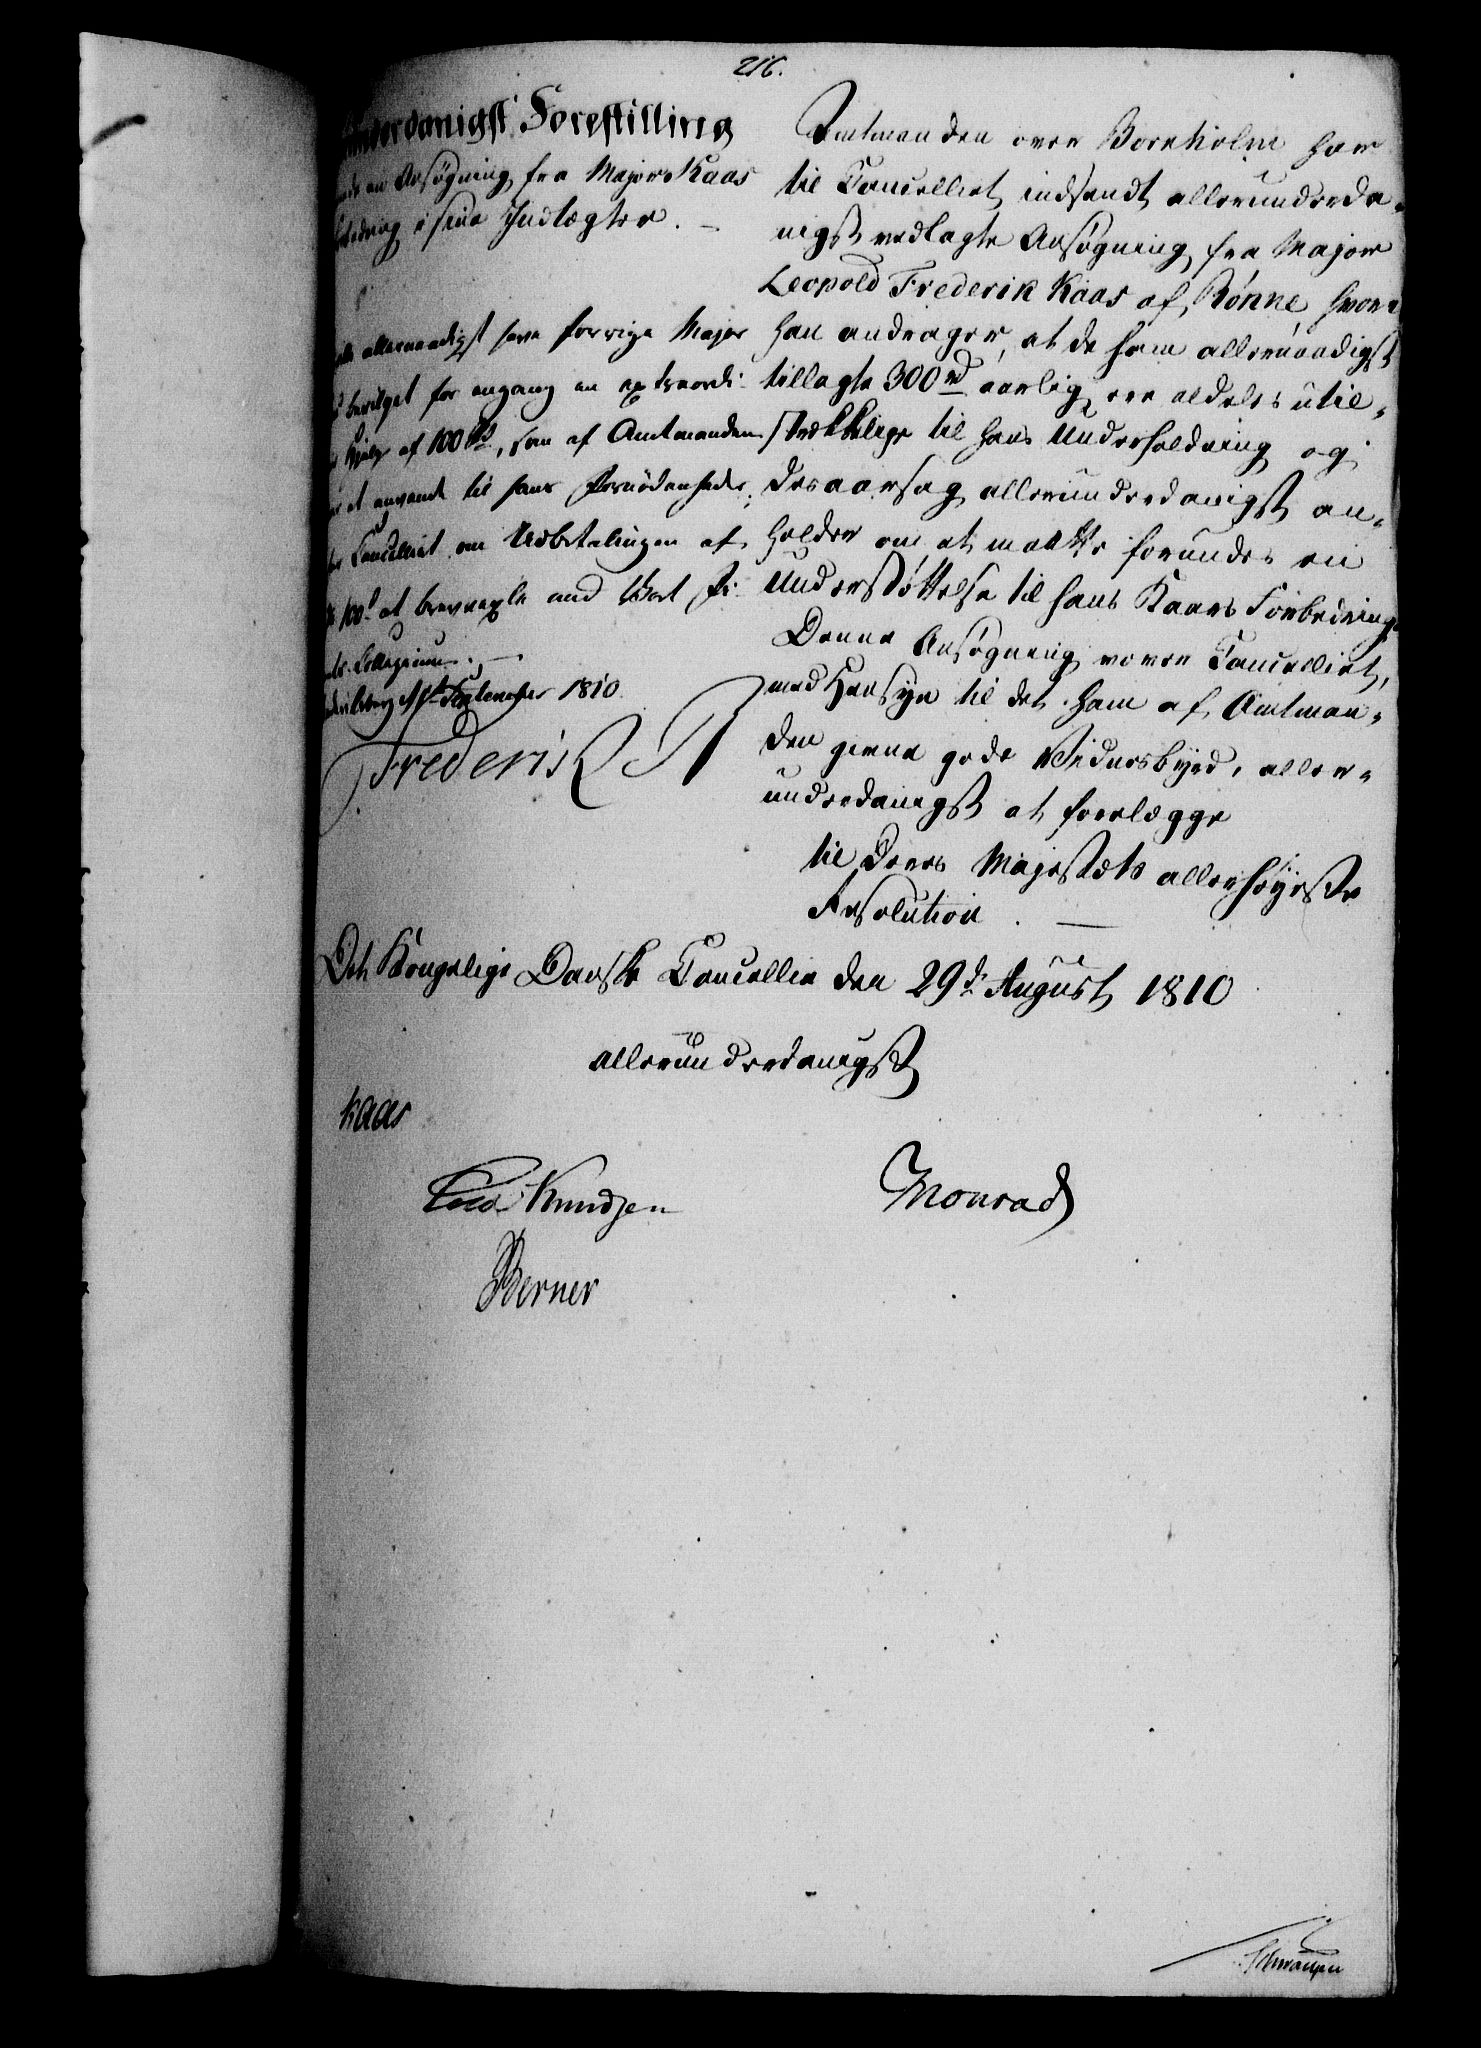 216.
underdanigst Forestilling
en Ansøgning fra Major Kaas
i sine Indtægter. —
allernaadigst have forrige Major
bevilget for engang en extraordi-
Hjelp af 100 rd, som af Amtmanden
at anvende til hans Fornødenheder,
Cancelliet om Udbetalingen af
100 rd at brevvexle med Vort Fi-
Collegium. —
September 1810.
Frederik R
Amtmanden over Bornholm har
til Cancelliet indsendt allerunderda-
nigst vedlagte Ansøgning fra Major
Leopold Frederik Kaas af Rønne hvori
han andrager, at de ham allernaadigst
tillagte 300 rd aarlig ere aldeles util-
strækkelige til hans Underholdning og
desaarsag allerunderdanigst an-
holder om at maatte forundes en
Understøttelse til hans Kaars Forbedring
Denne Ansøgning vover Cancelliet,
med Hensyn til det ham af Amtman-
den givne gode Vidnesbyrd, aller-
underdanigst at forelægge
til Deres Majestæts allerhøyeste
Resolution. —
Det Kongelige Danske Cancellie den 29de August 1810
allerunderdanigst
Kaas
Knudsen
Monrad
Berner